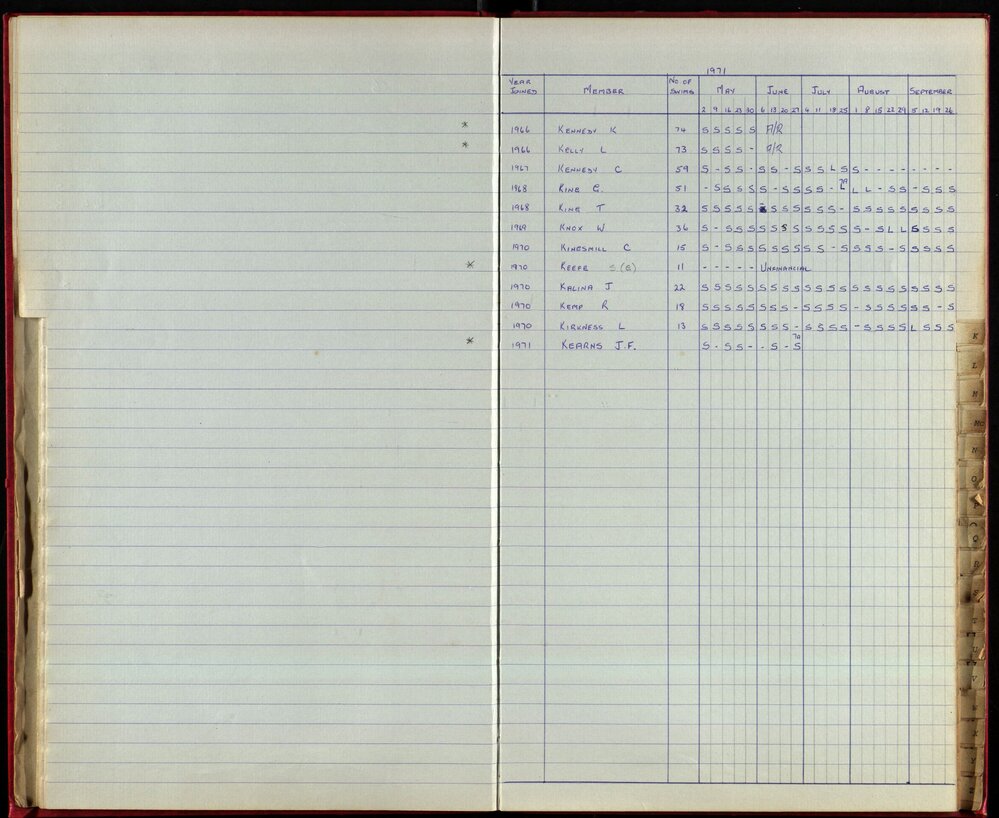 1971
YEAR JOINED MEMBER NO OF SWIMS MAY JUNE JULY AUGUST SEPTEMBER
2 9 16 23 30 6 13 20 27 4 11 18 25 1 8 15 22 29 5 12 19 26
* 1966 KENNEDY K 74 S S S S S A/R
* 1966 KELLY L 73 S S S S - A/R
1967 KENNEDY C 59 S - S S - S S - S S S L S S - - - - - - - -
1968 KING G. 51 - S S S S S - S S S S - L L L - S S - S S S
1968 KING T 32 S S S S S S S S S S S - S S S S S S S S S
1969 KNOX W 36 S - S S S S S S S S S S S S - S L L S S S S
1970 KINGSMILL C 15 S - S S S S S S S S S - S S S S - S S S S S
* 1970 KEEFE S (G) 11 - - - - - UNFINANCIAL
1970 KALINA J 22 S S S S S S S S S S S S S S S S S S S S S S
1970 KEMP R 18 S S S S S S S S - S S S S - S S S S S S - S
1970 KIRKNESS L 13 S S S S S S S S - S S S S - S S S S L S S S
* 1971 KEARNS J.F. S - S S - - S - S
K
L
M
MC
N
O
Q
R
S
T
U
V
W
X
Y